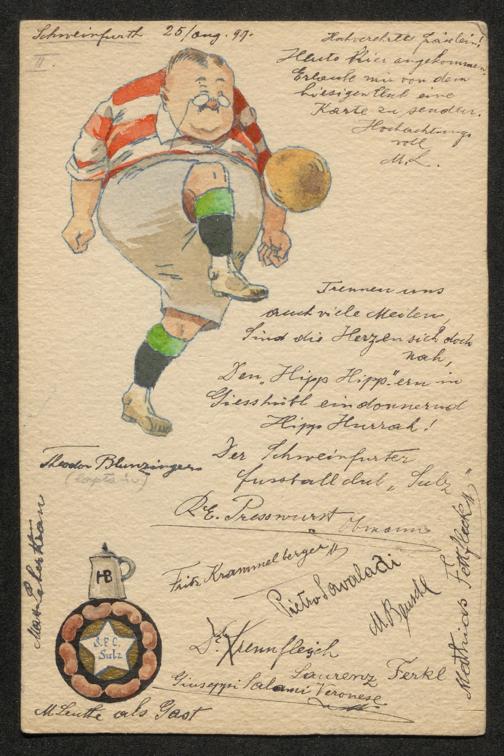 Schweinfurth 25/Aug. 97.
II.
Hochverehrte Fräulein!
Heute hier angekommen,
Erlaube mir von dem
hiesigen Club eine
Karte zu senden.
Hochachtungs
voll
M. L.
Trennen uns
auch viele Meilen,
Sind die Herzen sich doch
nah,
Den „Hipp Hipp"ern in
Giesshübl ein donnernd
Hipp Hurrah!
Der Schweinfurter
Fussballclub „Sulz"
Theodor Blunzinger
R. E. Presswurst Obmann
Fritz Krammelberger
Pietro Lavaladi
M. Beuschl
Mathias Fettfleck
Dr. Krennfleisch
Laurenz Ferkl
Giuseppi Salami Veronese
HB
S.F.C.
Sulz
M. Leuthe als Gast